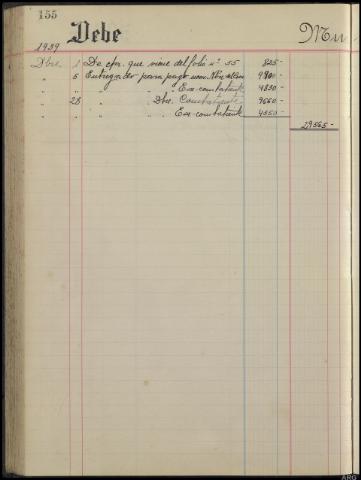 155
Debe
Mu
1939
Dbre 1 De cta. que viene del folio nº 55 825-
" 6 Entregado para pago nom. Nbre 4900-
" " " " Ex-combatiente 4830-
" 28 " Dbre. Combatiente 9660-
" " " " Ex-combatiente 4550-
29565-
ARG